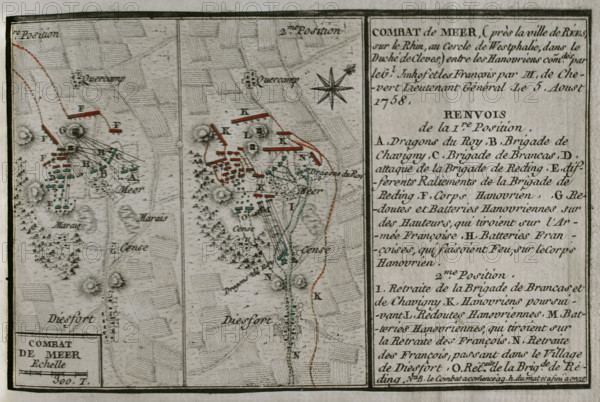 1re Position
2me Position
Quercamp
Quercamp
Dragons du Roy
Meer
Meer
Marais
Marais
Cense
Cense
Cense
Diesfort
Diesfort
COMBAT
DE MEER
Echelle
300. T.
COMBAT de MEER, (près la ville de REES,
sur le Rhin, au Cercle de Westphalie, dans le
Duché de Cleves,) entre les Hanovriens comdés par
le Gl. Imhof et les François par M. de Che-
vert Lieutenant Général. Le 5. Aoust
1758.
RENVOIS
de la 1re Position.
A. Dragons du Roy. B. Brigade de
Chavigny. C. Brigade de Brancas. D.
attaque de la Brigade de Reding. E. dif-
ferents Raliements de la Brigade de
Reding. F. Corps Hanovrien. G. Re-
doutes et Batteries Hanovriennes sur
des Hauteurs, qui tiroient sur l'Ar-
mée Françoise. H. Batteries Fran-
çoises, qui faisoient Feu, sur le Corps
Hanovrien.
2me Position.
I. Retraite de la Brigade de Brancas et
de Chavigny. K. Hanovriens poursui-
vant. L. Redoutes Hanovriennes. M. Bat-
teries Hanovriennes, qui tiroient sur
la Retraite des François. N. Retraite
des François, passant dans le Village
de Diesfort. O. Rette de la Brigde de Ré-
ding. Nta B. le Combat a comencé à 9. h. du mat. et a fini à onze